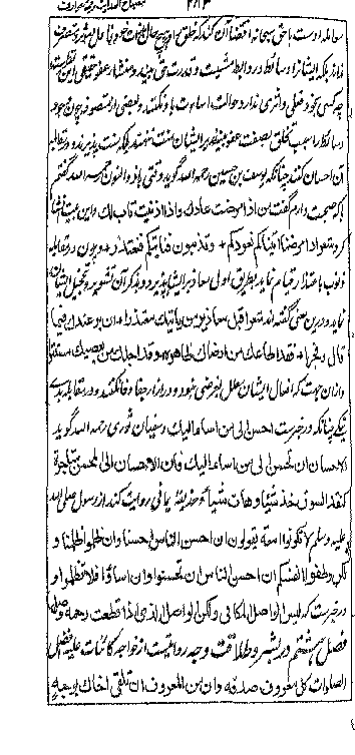 ۲۸۳
معامله اوست با حق سبحانه اقتضا آن کند که خلق
بلکه ایشانرا در میانه و روابط مشیت و قدرت حق بیند و منشاء عفو حقیقی این نظرست
چه کسی بخود فعلی و اثری ندارد حوالت اساءت باو نکنند و بعضی از متصوفه چون
بصفت عفو بنظیر ایشان منت ننهند بلکه منت پذیرند و در مقابله
آن احسان کنند چنانکه یوسف بن حسین رحمه الله گوید وقتی با ذوالنون رحمه الله گفتم
با که صحبت دارم گفت من اذا مرضت عادك و اذا اذنبت تاب لك و این بیت انشا
کرد شعر اذا مرضنا اتیناکم نعودکم + و تذنبون فناتیکم فنعتذر + و چون در مقابله
ذنوب باعتذار قیام نماید بطریق اولی معاذیر ایشان پذیرد و بذکر آن تشویر و تخجیل ایشان
نماید و درین معنی گفته اند شعر اقبل معاذیر من یاتیك معتذرا + ان بر عندك فیما
قال او فجرا + فقد اطاعك من ارضاك ظاهره + وقد اجلك من یعصیك مستترا
و ازان جهت که افعال ایشان معلل بغرضی نبود و در ازاء جفا وفا کنند و در مقابله بدی
نیکی چنانکه در خبرست احسن الی من اساء الیك و سفیان ثوری رحمه الله گوید
الاحسان ان تحسن الی من اساء الیك فان الاحسان الی المحسن متاجرة
کنقد السوق خذ شیئا و هات شیئا و حذیفه یمانی روایت کند از رسول صلی الله
علیه وسلم لا تکونوا امعة تقولون ان احسن الناس احسنا وان ظلموا ظلمنا و
لکن وطنوا انفسکم ان احسن الناس ان تحسنوا وان اساؤا فلا تظلموا و
در خبرست که لیس الواصل المکافی ولکن الواصل الذی اذا قطعت رحمه وصلها
فصل هشتم در بشر و طلاقت وجه روایتست از خواجه کائنات علیه افضل
الصلوات کل معروف صدقه وان من المعروف ان تلقی اخاك بوجه